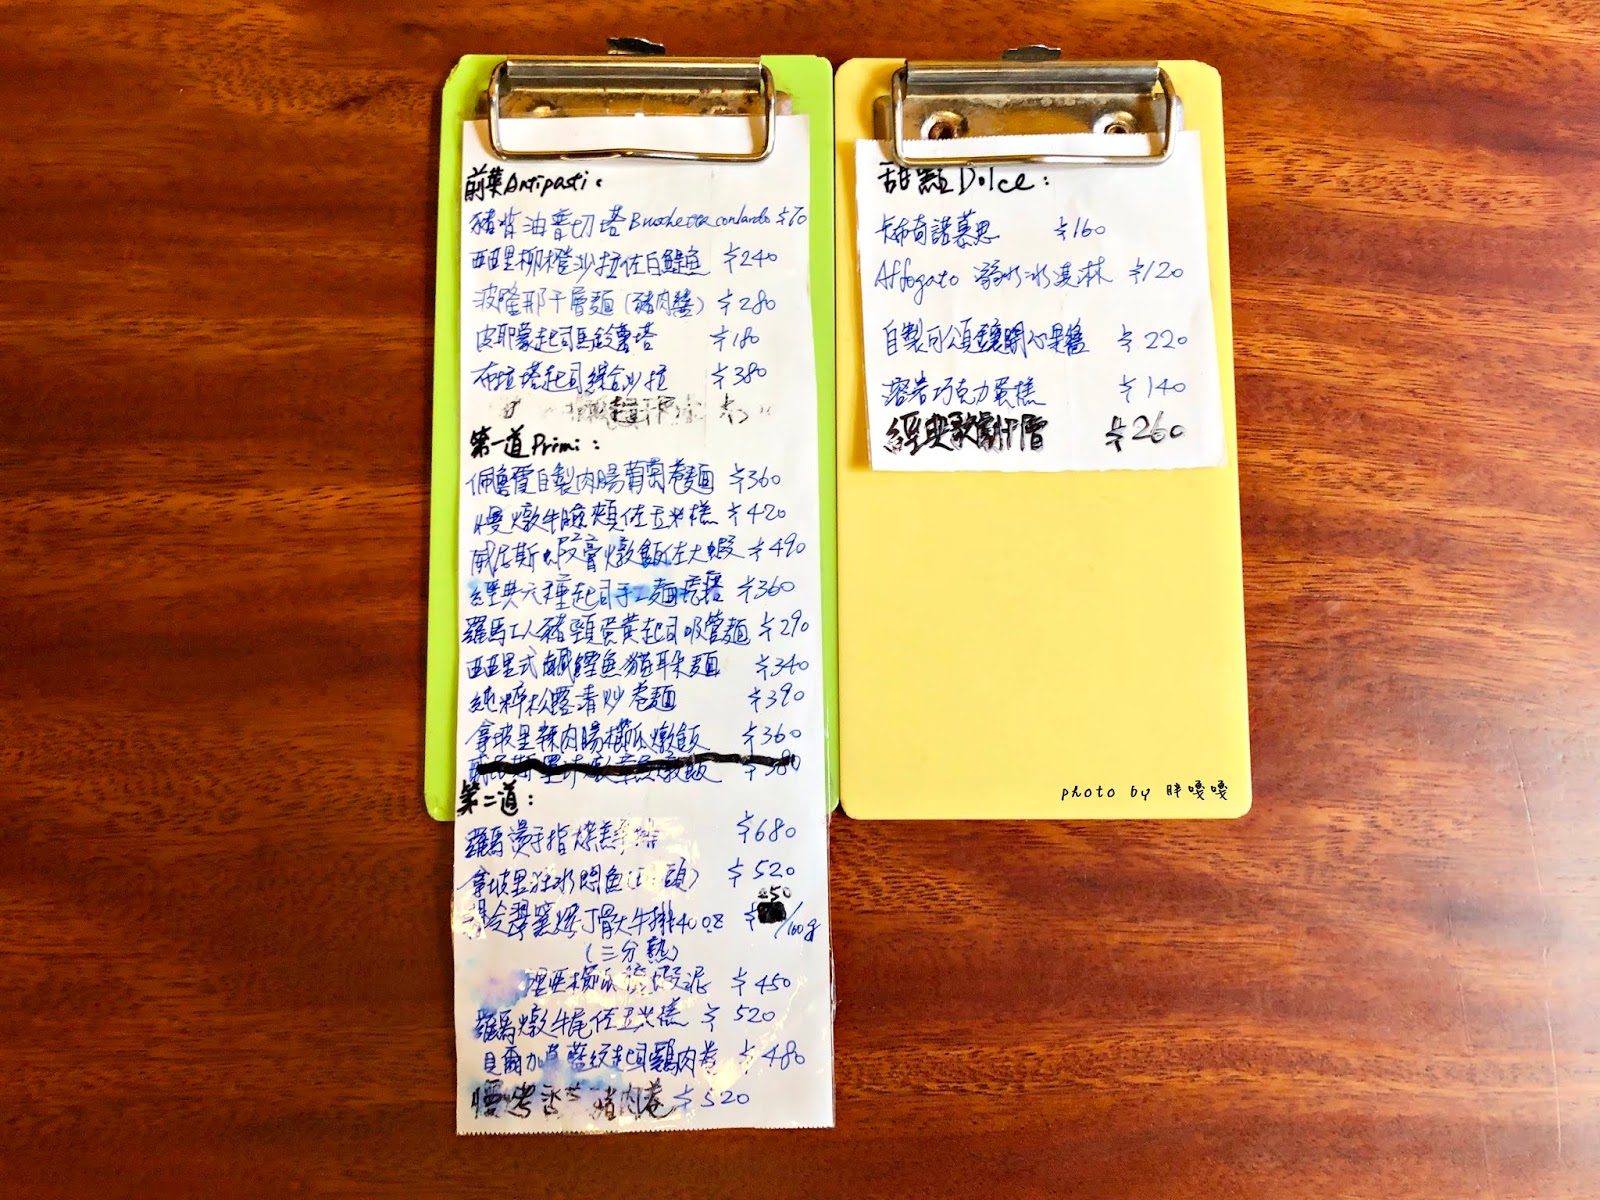 前菜Antipasti:
豬背油普切塔 Bruschetta con lardo $70
西西里柳橙沙拉佐白鯷魚 $240
波隆那千層麵(豬肉醬) $280
皮耶蒙起司馬鈴薯塔 $180
布拉塔起司綜合沙拉 $380
第一道Primi:
佩魯賈自製肉腸葡萄卷麵 $360
慢燉牛臉頰佐玉米糕 $420
威尼斯蝦膏燉飯佐大蝦 $490
經典六種起司手工麵疙瘩 $360
羅馬工人豬頸蛋黃起司吸管麵 $290
西西里式鹹鯷魚貓耳朵麵 $340
純粹松露清炒卷麵 $390
拿坡里辣肉腸櫛瓜燉飯 $360
$380
第二道:
羅馬燙手指 $680
拿坡里狂水燜魚 $520
丁骨大牛排40oz $250/100g
(三分熟)
櫛瓜 蝦泥 $450
羅馬燉牛尾佐玉米糕 $520
貝爾加莫藍紋起司雞肉卷 $480
豬肉卷 $520
甜點Dolce:
卡布奇諾慕思 $160
Affogato 溺水冰淇淋 $120
自製可頌鑲開心果醬 $220
熔岩巧克力蛋糕 $140
經典歌劇千層 $260
photo by 胖嘎嘎